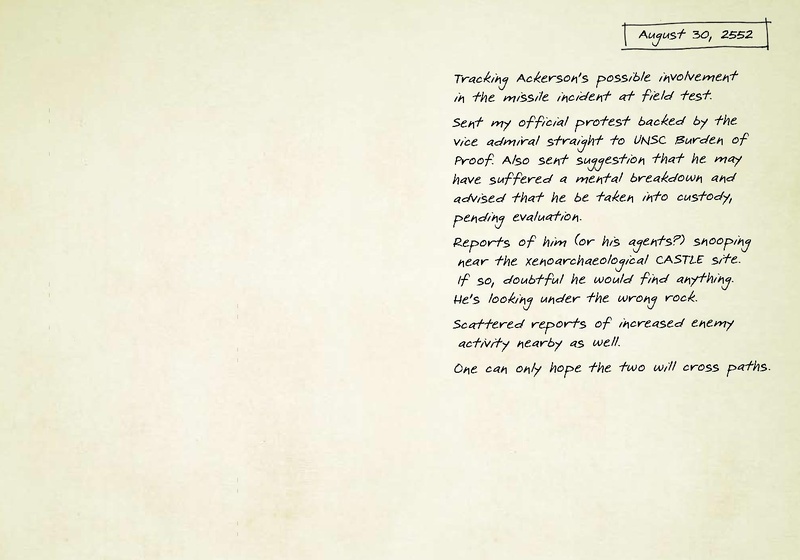 August 30, 2552
Tracking Ackerson's possible involvement
in the missile incident at field test.
Sent my official protest backed by the
vice admiral straight to UNSC Burden of
Proof. Also sent suggestion that he may
have suffered a mental breakdown and
advised that he be taken into custody,
pending evaluation.
Reports of him (or his agents?) snooping
near the xenoarchaeological CASTLE site.
If so, doubtful he would find anything.
He's looking under the wrong rock.
Scattered reports of increased enemy
activity nearby as well.
One can only hope the two will cross paths.